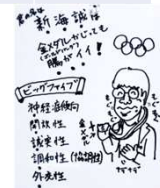 新海誠は
金メダルかじっても
腸がイイ!
ビッグファイブ
神経症傾向
開放性
誠実性
調和性(協調性)
外向性